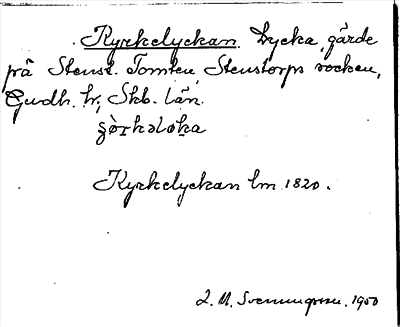 Kyrkelyckan. Lycka, gärde
på Stenst. Tomten, Stenstorps socken,
Gudh. hr, Skb. län.
Kyrkelyckan lm 1820.
L. M. Svenungsson. 1950